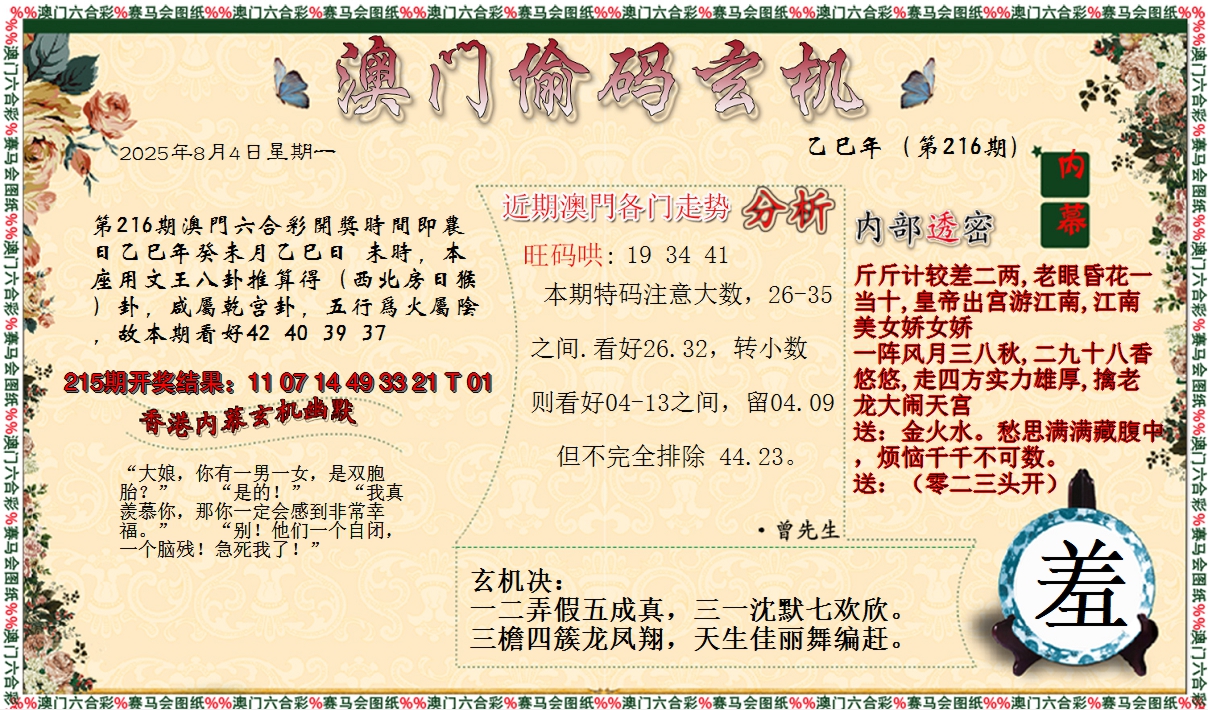 %%澳门六合彩%赛马会图纸%%澳门六合彩%赛马会图纸%%澳门六合彩%赛马会图纸%%澳门六合彩%赛马会图纸%%澳门六合彩%赛马会图纸%%澳门六合彩%赛马会图纸%%
澳门偷码玄机
2025年8月4日星期一
乙巳年（第216期）
内
幕
第216期澳門六合彩開獎時間即農
日乙巳年癸未月乙巳日 未時，本
座用文王八卦推算得（西北房日猴
）卦，咸屬乾宫卦，五行爲火屬陰
，故本期看好42 40 39 37
215期开奖结果：11 07 14 49 33 21 T 01
香港内幕玄机幽默
“大娘，你有一男一女，是双胞
胎？” “是的！” “我真
羡慕你，那你一定会感到非常幸
福。” “别！他们一个自闭，
一个脑残！急死我了！”
近期澳門各门走势 分析
旺码哄: 19 34 41
本期特码注意大数，26-35
之间.看好26.32，转小数
则看好04-13之间，留04.09
但不完全排除 44.23。
·曾先生
内部透密
斤斤计较差二两,老眼昏花一
当十,皇帝出宫游江南,江南
美女娇女娇
一阵风月三八秋,二九十八香
悠悠,走四方实力雄厚,擒老
龙大闹天宫
送：金火水。愁思满满藏腹中
，烦恼千千不可数。
送：（零二三头开）
玄机决：
一二弄假五成真，三一沈默七欢欣。
三檐四簇龙凤翔，天生佳丽舞编赶。
羞
%%澳门六合彩%赛马会图纸%%澳门六合彩%赛马会图纸%%澳门六合彩%赛马会图纸%%澳门六合彩%赛马会图纸%%澳门六合彩%赛马会图纸%%澳门六合彩%赛马会图纸%%